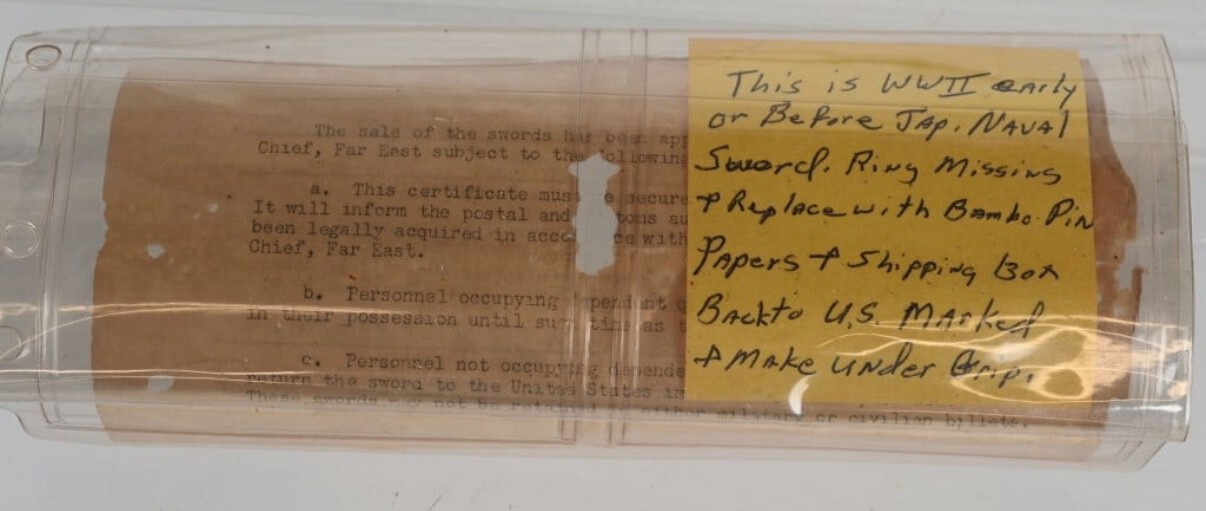 The sale of the swords has been app
Chief, Far East subject to the following
a. This certificate must be secure
It will inform the postal and toms au
been legally acquired in acco ce with
Chief, Far East.
b. Personnel occupying dependent q
in their possession until su time as t
c. Personnel not occupying depende
return the sword to the United States im
These swords may not be retained in either military or civilian billets.
This is WWII early
or Before JAP. NAVAL
Sword. Ring Missing
+ Replace with Bambo Pin
Papers + Shipping Box
Back to U.S. Marked
+ Make under Grip.